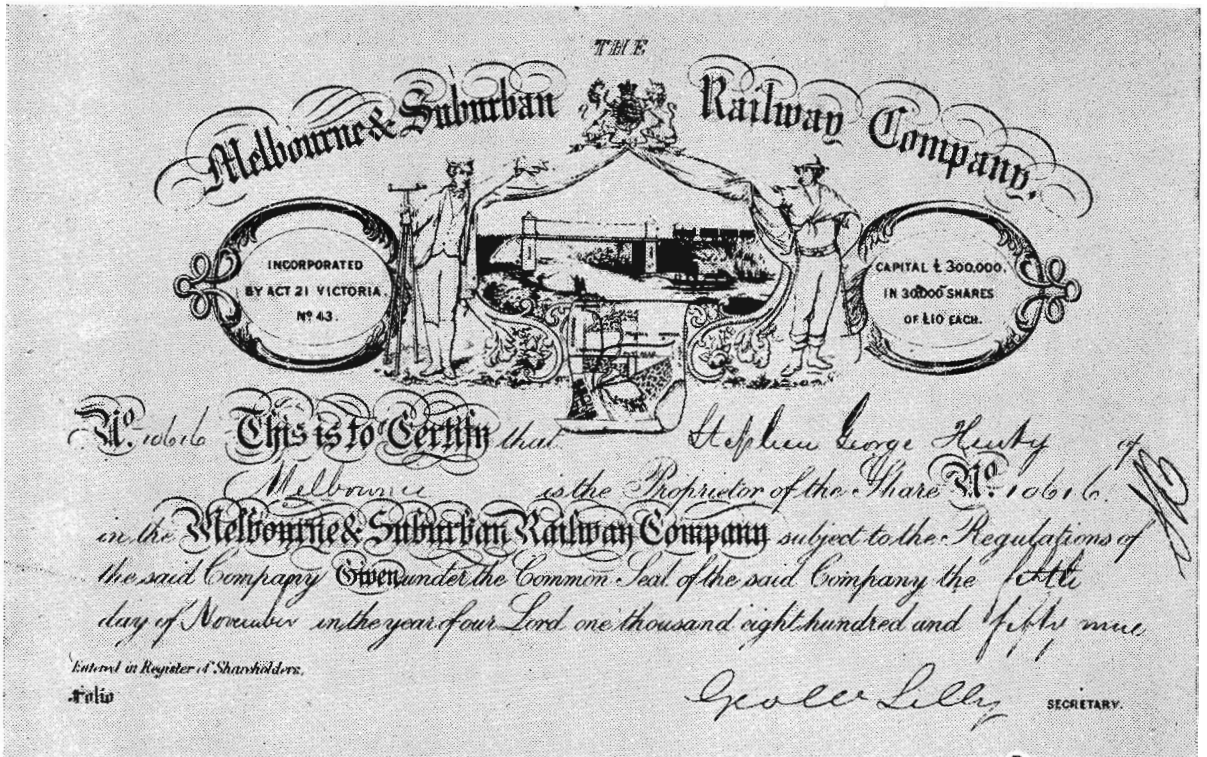 THE
Melbourne & Suburban Railway Company.
INCORPORATED
BY ACT 21 VICTORIA.
No 43.
CAPITAL £ 300,000.
IN 30,000 SHARES
OF £10 EACH.
No. 10616 This is to Certify that Stephen George Henty of
Melbourne is the Proprietor of the Share No. 10616
in the Melbourne & Suburban Railway Company subject to the Regulations of
the said Company Given under the Common Seal of the said Company the fifth
day of November in the year of our Lord one thousand eight hundred and fifty nine
Entered in Register of Shareholders.
Folio
Lilly SECRETARY.